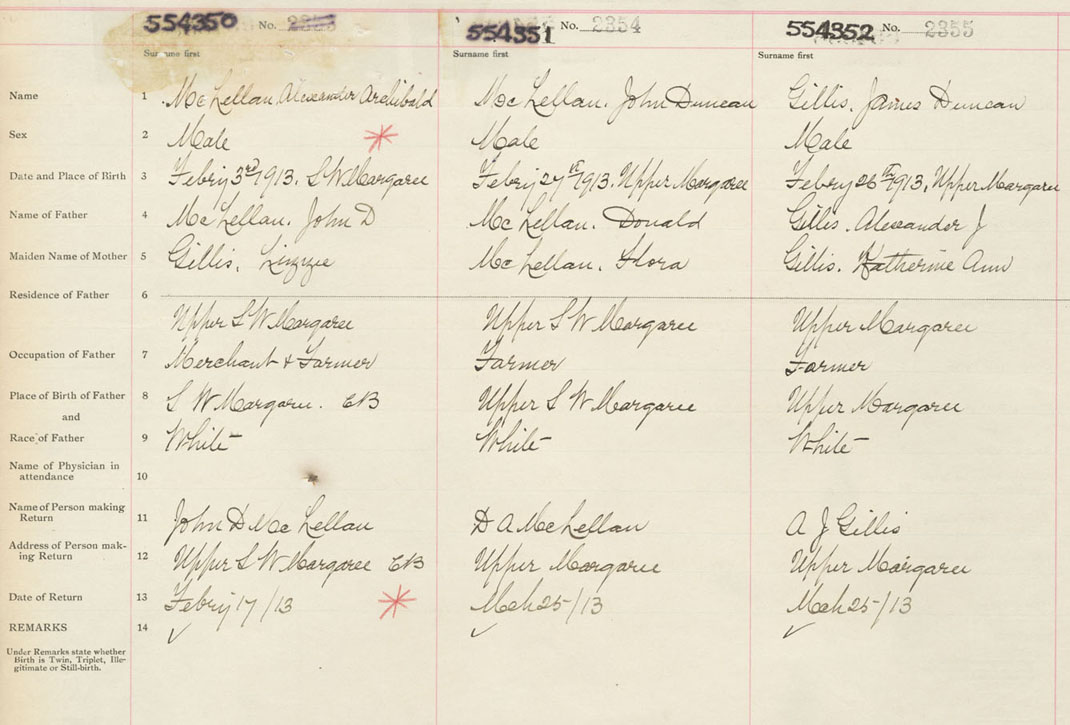 554350 No.
554351 No. 2354
554352 No. 2355
Surname first Surname first Surname first
Name 1 McLellan. Alexander Archibald Mc Lellan. John Duncan Gillis. James Duncan
Sex 2 Male Male Male
Date and Place of Birth 3 Febry 3rd 1913. S W Margaree Febry 27th 1913. Upper Margaree Febry 26th 1913. Upper Margaree
Name of Father 4 Mc Lellan. John D Mc Lellan. Donald Gillis. Alexander J
Maiden Name of Mother 5 Gillis. Lizzie Mc Lellan. Flora Gillis. Katherine Ann
Residence of Father 6
Upper S W Margaree Upper S W Margaree Upper Margaree
Occupation of Father 7 Merchant & Farmer Farmer Farmer
Place of Birth of Father 8 S W Margaree. CB Upper S W Margaree Upper Margaree
and
Race of Father 9 White White White
Name of Physician in
attendance 10
Name of Person making
Return 11 John D Mc Lellan D A McLellan A J Gillis
Address of Person mak-
ing Return 12 Upper S W Margaree CB Upper Margaree Upper Margaree
Date of Return 13 Febry 17/13 Mch 25/13 Mch 25/13
REMARKS 14
Under Remarks state whether
Birth is Twin, Triplet, Ille-
gitimate or Still-birth.